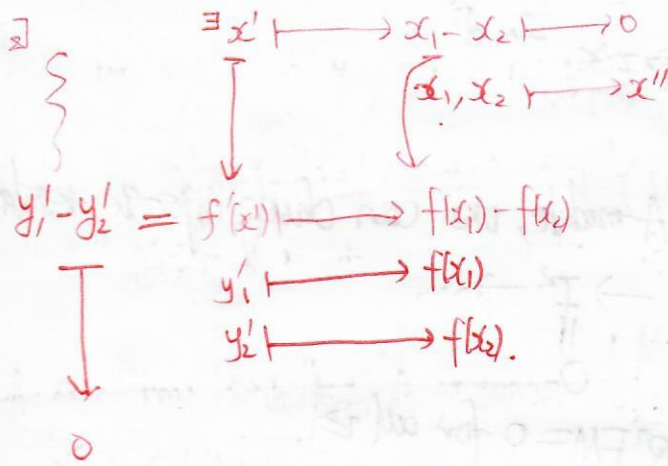 ∃x' ⟼ x₁ - x₂ ⟼ 0
x₁, x₂ ⟼ x''
y₁' - y₂' = f'(x') ⟼ f(x₁) - f(x₂)
y₁' ⟼ f(x₁)
y₂' ⟼ f(x₂).
0